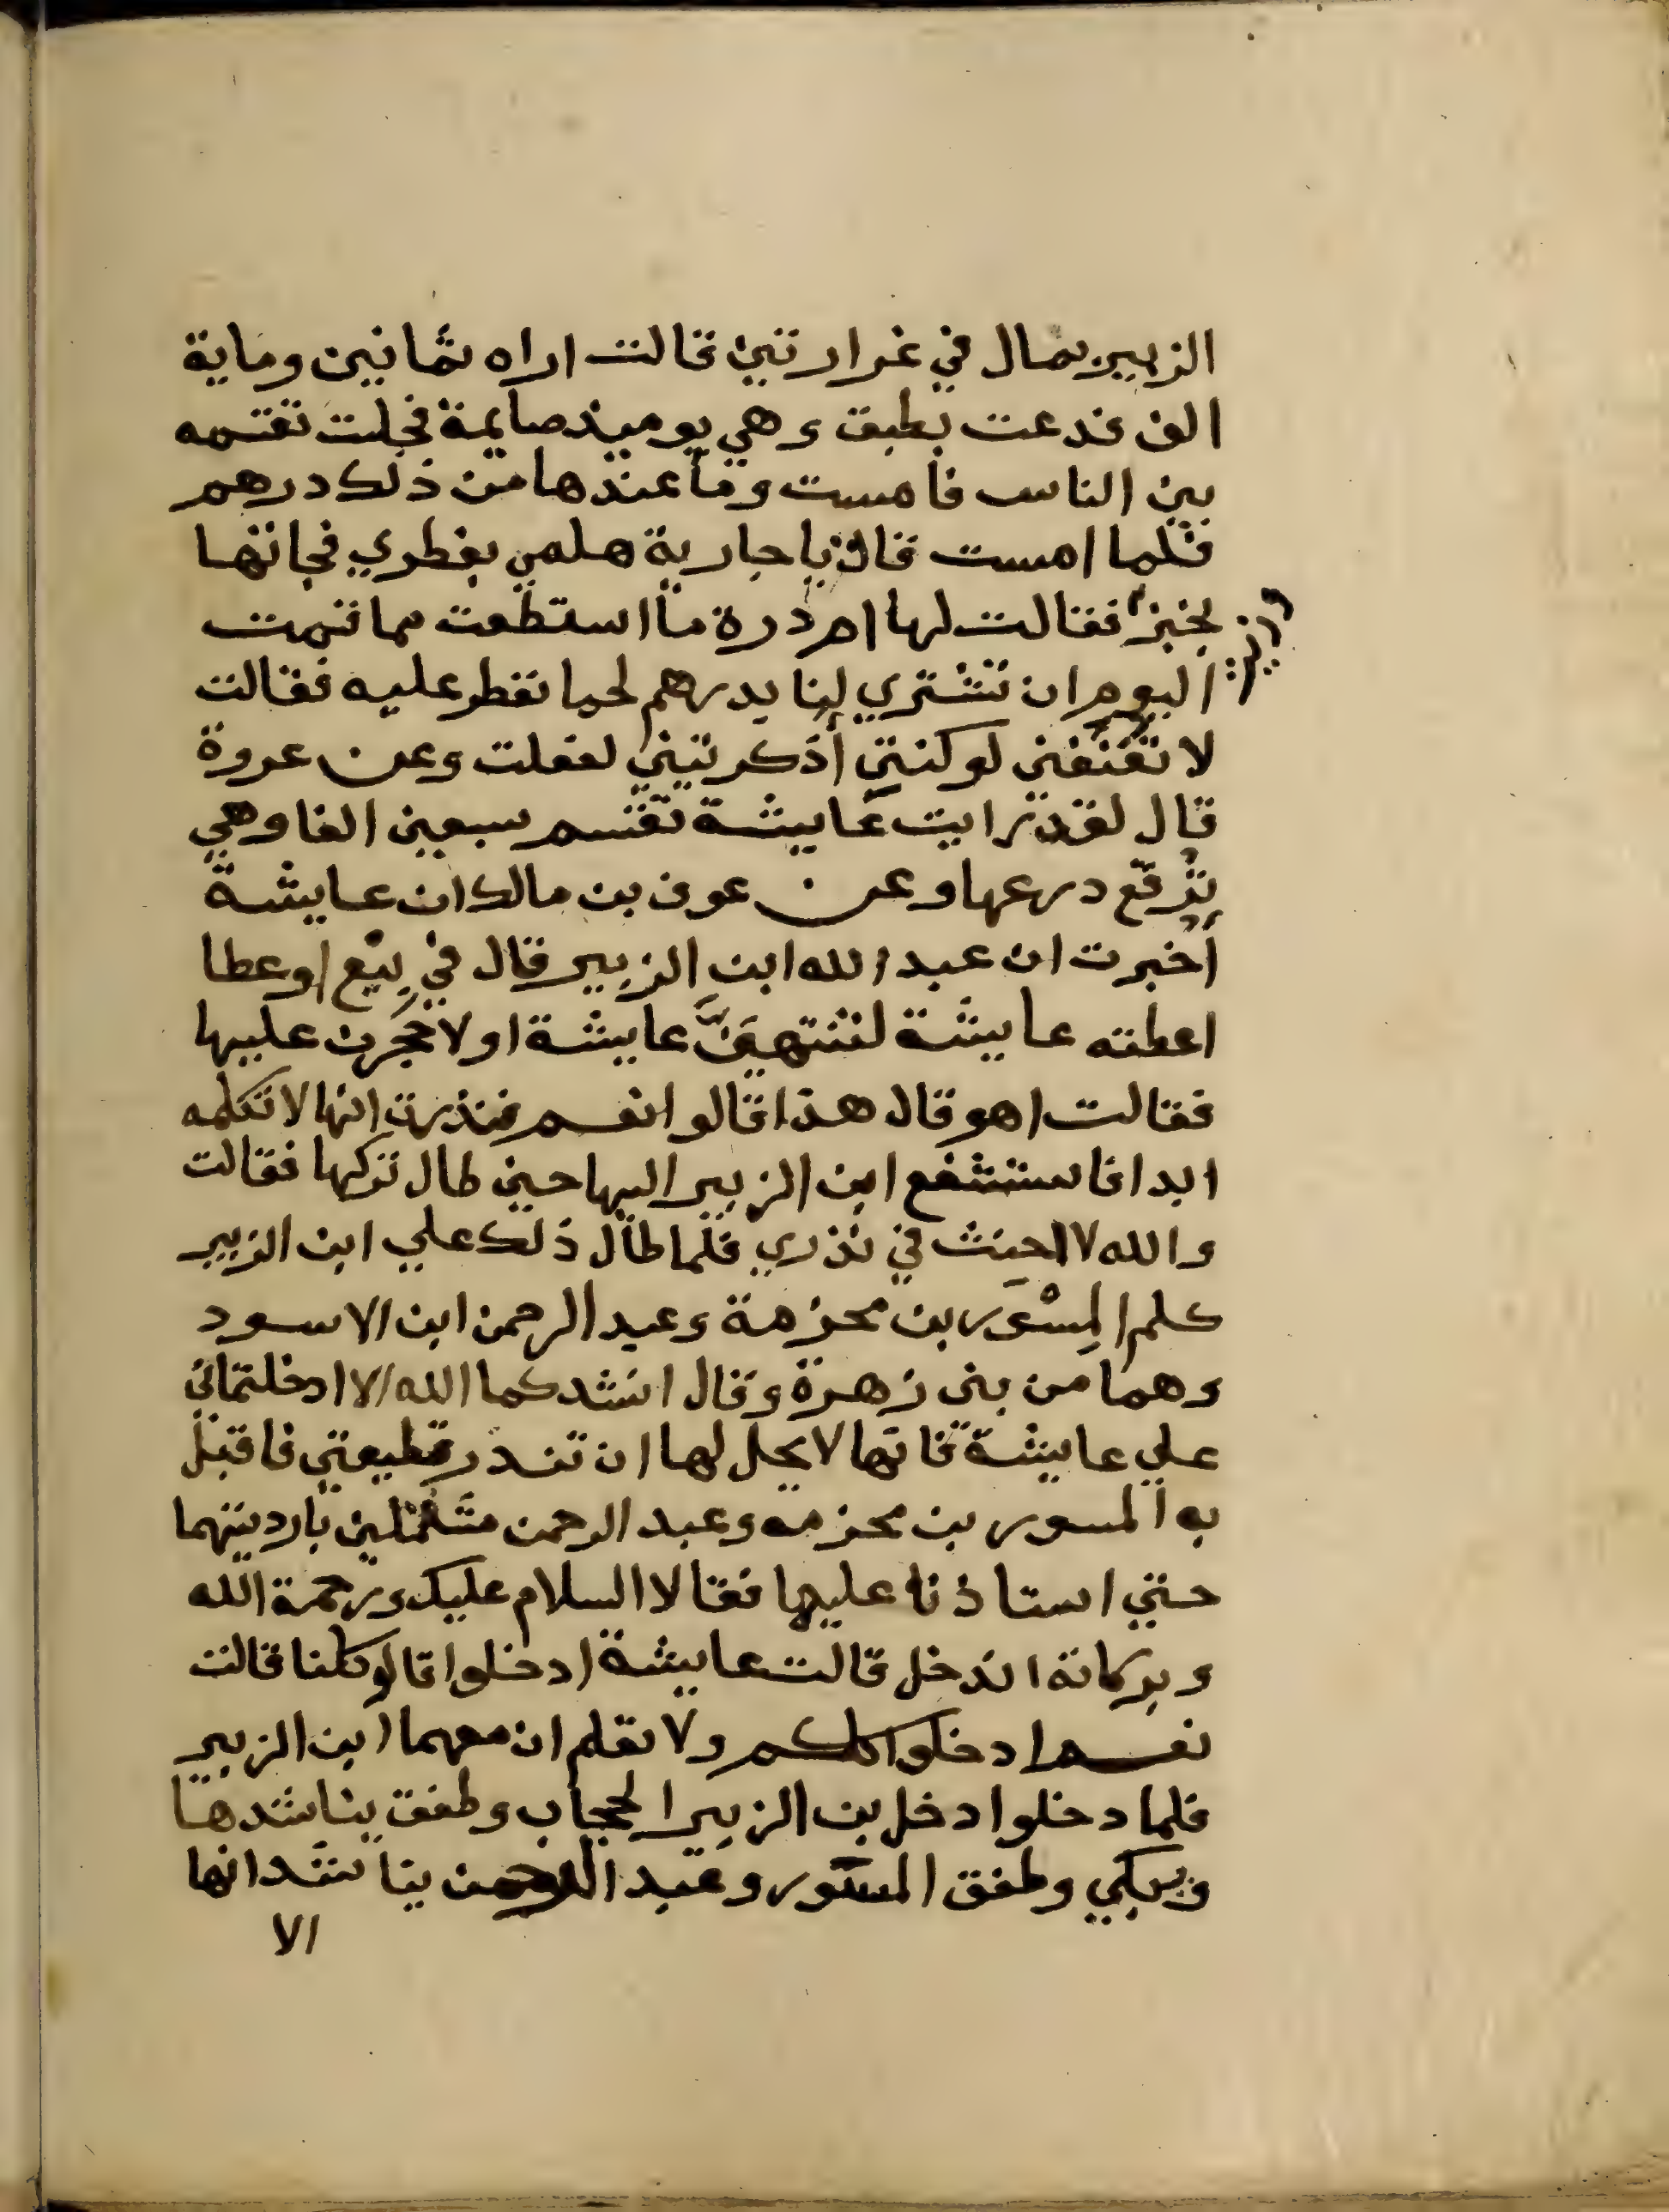 الزبير بمال في غرارتين قالت اراه ثمانين وماية
الف فدعت بطبق وهي يوميذ صايمة فجلت تقتسمه
بين الناس فامست وما عندها من ذلك درهم
فلما امست قالت يا جارية هلمي بفطري فجاتها
بخبز فقالت لها ام ذرة ما استطعت مما قسمت
اليوم ان تشتري لنا بدرهم لحما نفطر عليه فقالت
لا تعنفني لو كنتي أذكرتيني لفعلت وعن عروة
قال لقد رايت عايشة تقتسم سبعين الفا وهي
ترقع درعها وعن عوف بن مالك ان عايشة
أخبرت ان عبد الله ابن الزبير قال في بيع اوعطا
اعطته عايشة لتنتهين عايشة او لاحجرن عليها
فقالت اهو قال هذا قالوا نعم فنذرت انها لا تكلمه
ابدا فاستشفع ابن الزبير اليها حين طال تركها فقالت
والله لا احنث في نذري فلما طال ذلك علي ابن الزبير
كلم المسور بن مخزمة وعبد الرحمن ابن الاسود
وهما من بني زهرة وقال انشدكما الله الا ادخلتماني
علي عايشة فانها لا يحل لها ان تنذر قطيعتي فاقبل
به المسور بن مخزمه وعبد الرحمن مشتملين بارديتهما
حتي استاذنا عليها فقالا السلام عليك ورحمة الله
وبركاته اندخل قالت عايشة ادخلوا قالو كلنا قالت
نعم ادخلوا كلكم ولا تعلم ان معهما ابن الزبير
فلما دخلوا دخل بن الزبير الحجاب وطفق يناشدها
ويبكي وطفق المسور وعبد الرحمن يناشدانها
الا